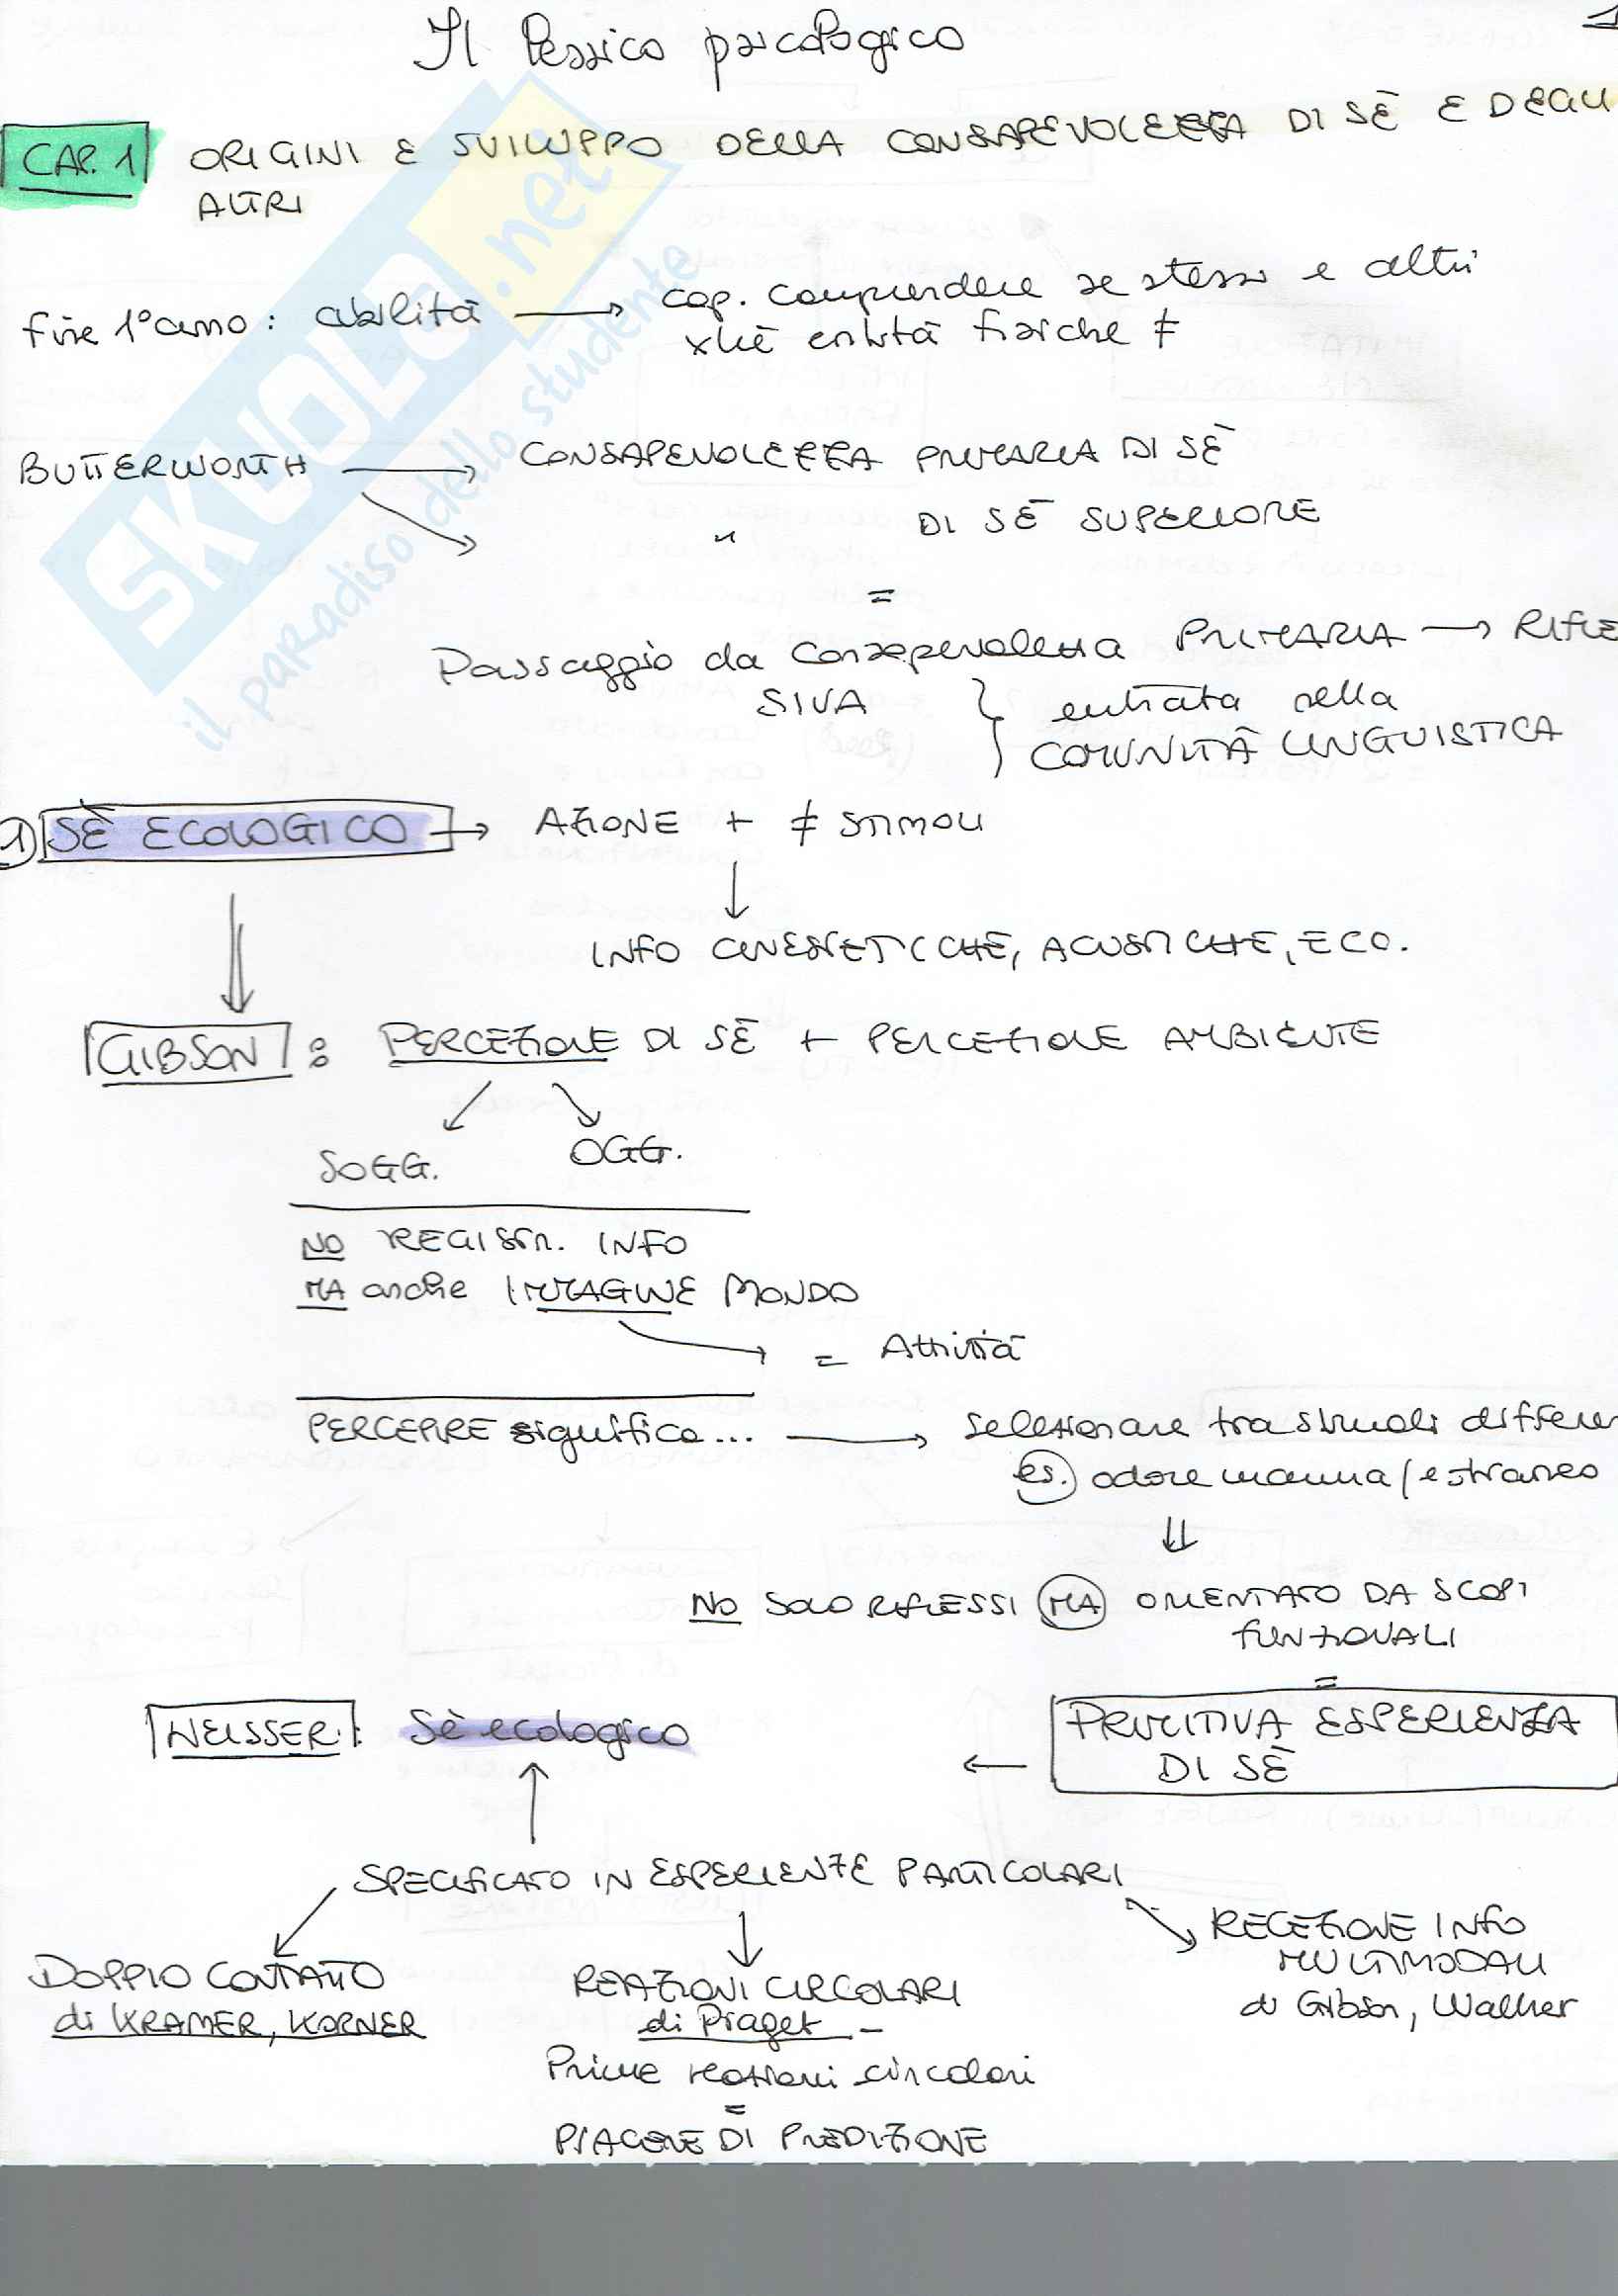 1
Il lessico psicologico
CAP. 1 ORIGINI E SVILUPPO DELLA CONSAPEVOLEZZA DI SÈ E DEGLI
ALTRI
fine 1° anno: abilità → cap. comprendere se stessi e altri
xkè entità fisiche ≠
BUTTERWORTH → CONSAPEVOLEZZA PRIMARIA DI SÈ
" DI SÈ SUPERIORE
=
Passaggio da consapevolezza PRIMARIA → RIFLES
SIVA } entrata nella
COMUNITÀ LINGUISTICA
1) SÈ ECOLOGICO → AZIONE + ≠ STIMOLI
↓
INFO CINESTETICHE, ACUSTICHE, ECO.
GIBSON: PERCEZIONE DI SÈ + PERCEZIONE AMBIENTE
SOGG. OGG.
NO REGISTR. INFO
MA anche IMMAGINE MONDO
= Attività
PERCEPIRE significa... → selezionare tra stimoli differen
es. odore mamma/estraneo
⇓
NO SOLO RIFLESSI MA ORIENTATO DA SCOPI
FUNZIONALI
=
NEISSER: Sè ecologico ← PRIMITIVA ESPERIENZA
DI SÈ
↑
SPECIFICATO IN ESPERIENZE PARTICOLARI
DOPPIO CONTATTO
di KRAMER, KORNER
REAZIONI CIRCOLARI
di Piaget
Prime reazioni circolari
=
PIACERE DI PREDIZIONE
RECEZIONE INFO
MULTIMODALI
di Gibson, Walker
SKUOLA.net
il paradiso dello studente